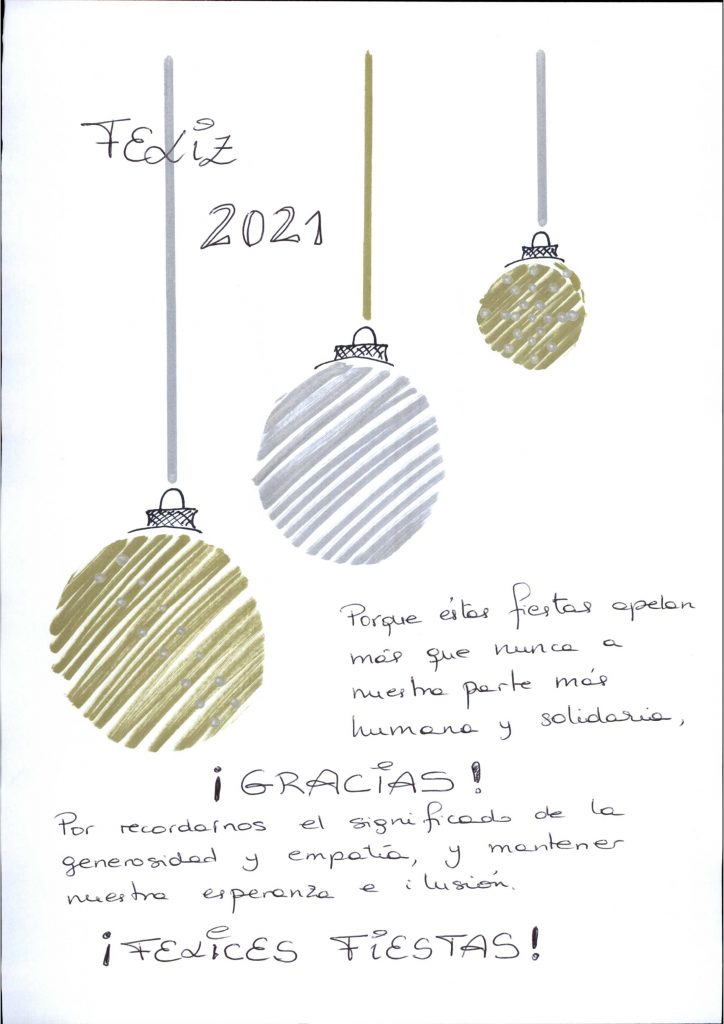 FELiZ
2021
Porque éstas fiestas apelan
más que nunca a
nuestra parte más
humana y solidaria,
¡GRACiAS!
Por recordarnos el significado de la
generosidad y empatía, y mantener
nuestra esperanza e ilusión.
¡FELiCES FiESTAS!